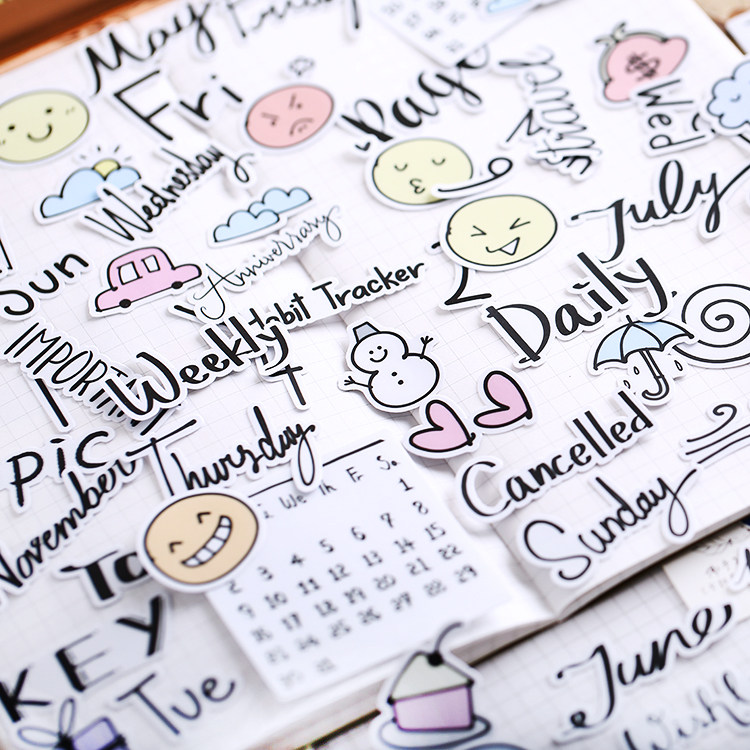 May
Fri
Page
travel
$$
Wed
Wednesday
Sun
Anniverrary
July
Habit Tracker
Daily
Weekly
IMPORTANT
PIC
Thursday
November
Cancelled
Sunday
We Th Fr Sa
1
5 6 7 8
2 3 4
9 10 11 12 13 14 15
16 17 18 19 20 21 22
23 24 25 26 27 28 29
30 31
To
KEY
Tue
June